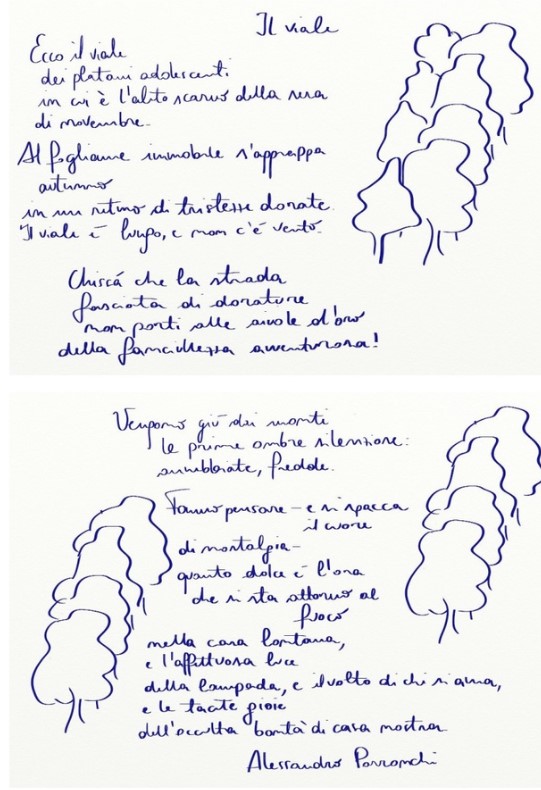 Il viale
Ecco il viale
dei platani adolescenti
in cui è l'alito scarno della sera
di novembre.
Al fogliame immobile s'aggrappa
autunno
in un ritmo di tristezze dorate.
Il viale è lungo, e non c'è vento.
Chissá che la strada
fasciata di dorature
non porti alle aiuole d'oro
della fanciullezza avventurosa!
Vengono giù dai monti
le prime ombre silenziose:
annebbiate, fredde.
Fanno pensare - e si spacca
il cuore
di nostalgia -
quanto dolce è l'ora
che si sta attorno al
fuoco
nella casa lontana,
e l'affettuosa luce
della lampada, e il volto di chi si ama,
e le tacite gioie
dell'occulta bontà di casa nostra
Alessandro Parronchi